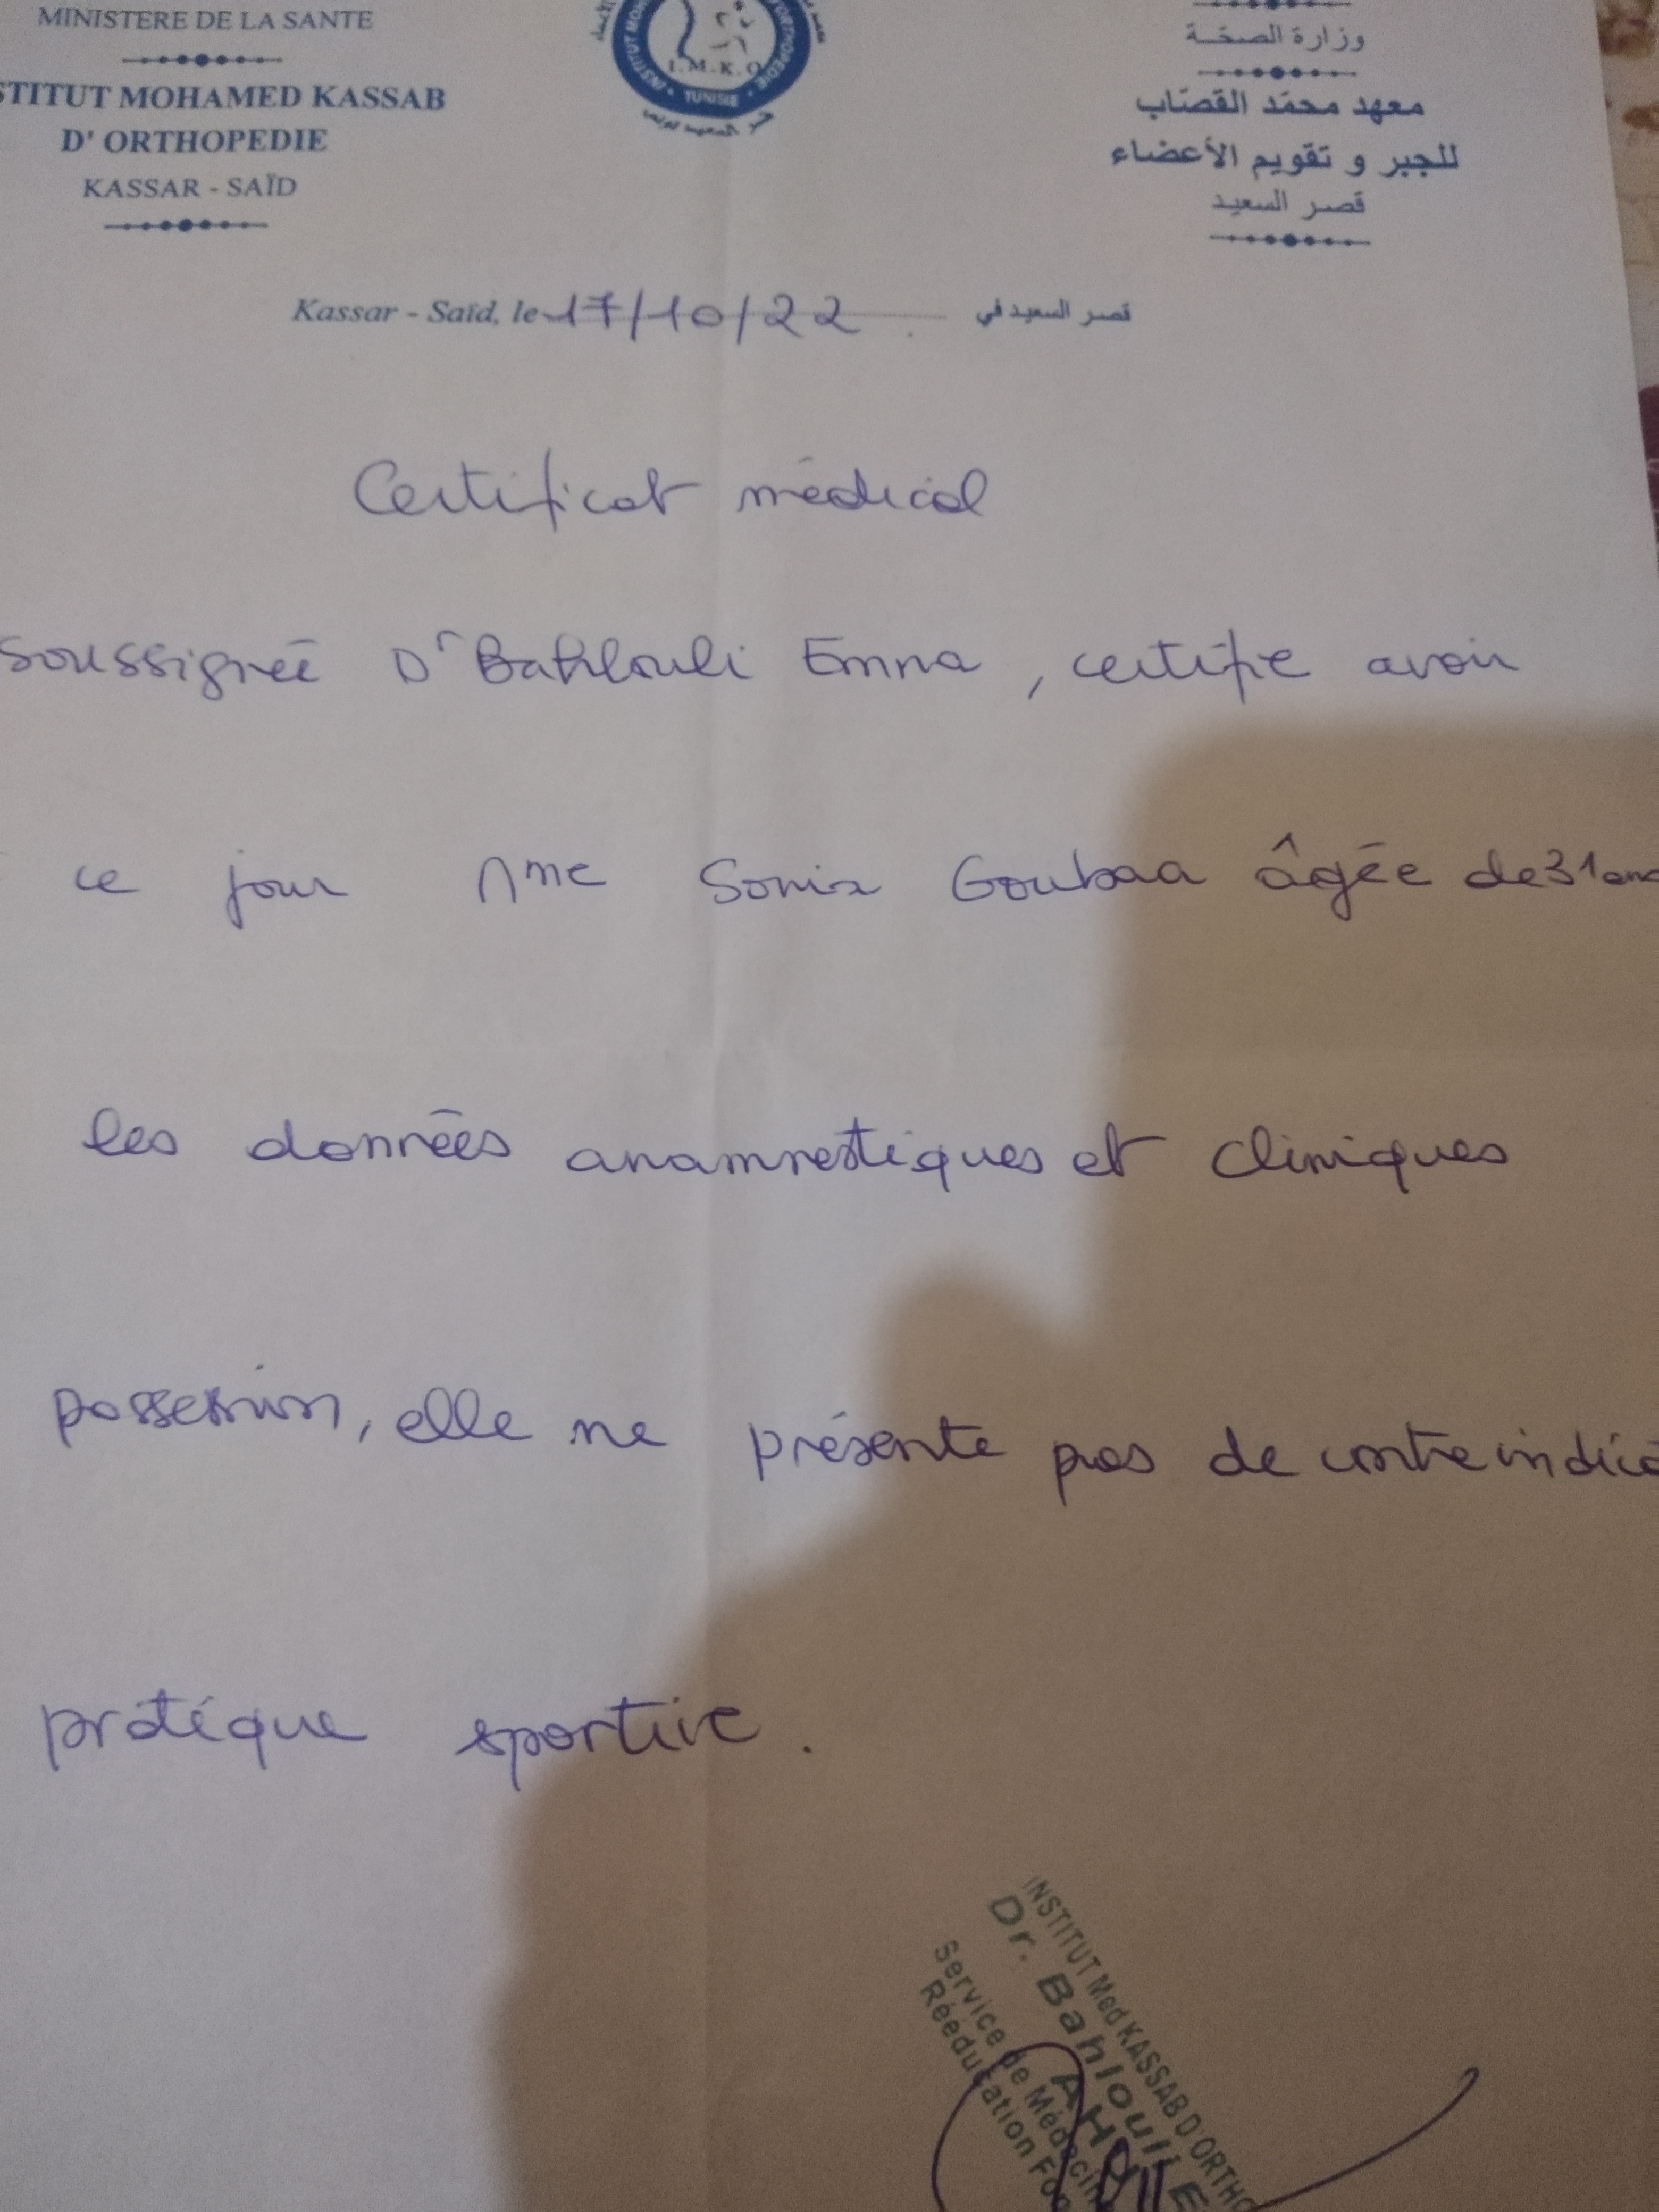 MINISTERE DE LA SANTE
STITUT MOHAMED KASSAB
D' ORTHOPEDIE
KASSAR - SAÏD
I.M.K.O
TUNISIE
وزارة الصحّة
معهد محمّد القصّاب
للجبر و تقويم الأعضاء
قصر السعيد
Kassar - Saïd, le 17/10/22 قصر السعيد في
Certificat médical
soussignée Dr Bahlouli Emna, certifie avoir
ce jour Mme Sonia Goubaa âgée de 31 ans
les données anamnestiques et cliniques
possession, elle ne présente pas de contre indica
pratique sportive.
INSTITUT Med KASSAB D'ORTHO
Dr. Bahlouli E
AH
Service de Médecin
Rééducation Fon